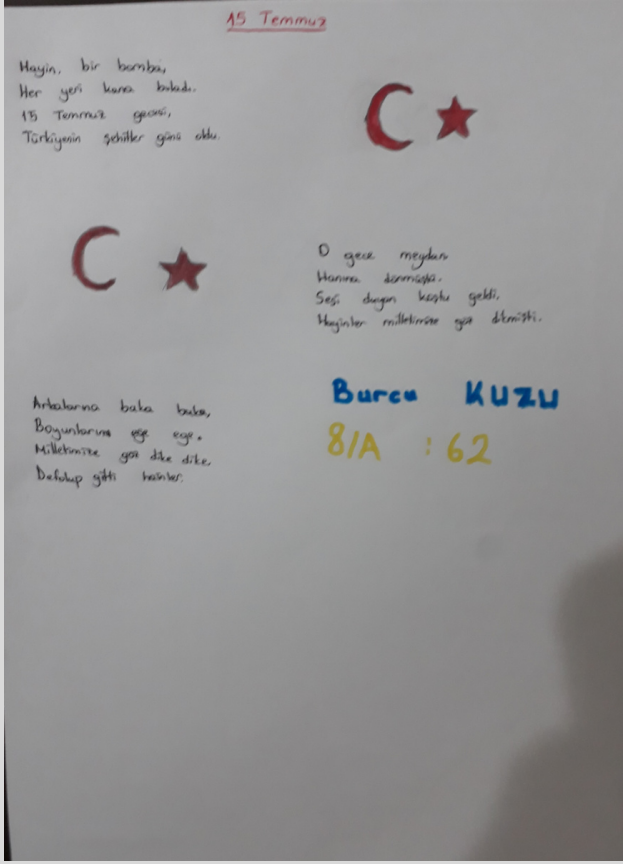 15 Temmuz
Hayin, bir bomba,
Her yeri kana buladı.
15 Temmuz gecesi,
Türkiyenin şehitler günü oldu.
O gece meydan
Harına dönmüştü.
Sesi duyan koştu geldi,
Hayinler milletimize göz dikmişti.
Arkalarına baka baka,
Boyunlarını eğe eğe.
Milletimize göz dike dike,
Defolup gitti hainler.
Burcu KUZU
8/A : 62